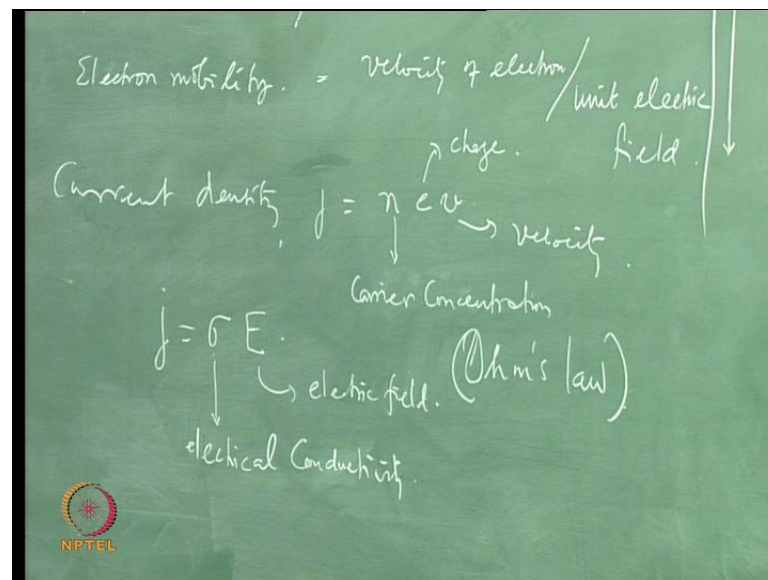 Electron mobility. = velocity of electron/unit electric
field.
charge.
Current density, j = n e v. → velocity.
Carrier Concentration
j = σ E.
electric field. (Ohm's law)
electrical Conductivity.
NPTEL